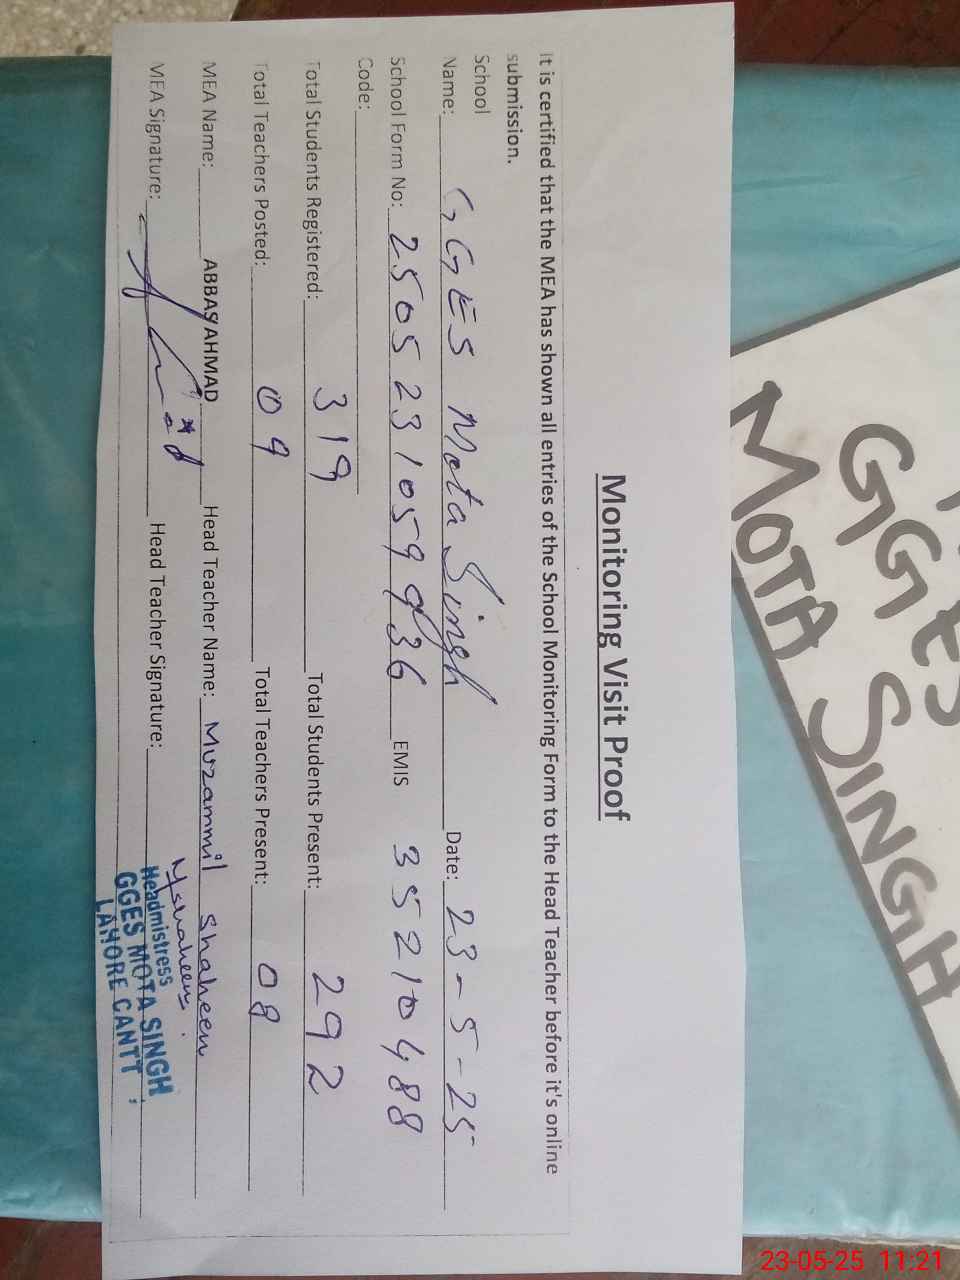 Monitoring Visit Proof
It is certified that the MEA has shown all entries of the School Monitoring Form to the Head Teacher before it's online
submission.
School
Name: GGES Mota Singh Date: 23-5-25
School Form No: 2505231059936 EMIS 35210488
Code:
Total Students Registered: 319 Total Students Present: 292
Total Teachers Posted: 09 Total Teachers Present: 08
MEA Name: ABBAS AHMAD Head Teacher Name: Muzammil Shaheen
MEA Signature: Head Teacher Signature: Mshaheen
Headmistress
GGES MOTA SINGH
LAHORE CANTT
GGES
MOTA SINGH
23-05-25 11:21